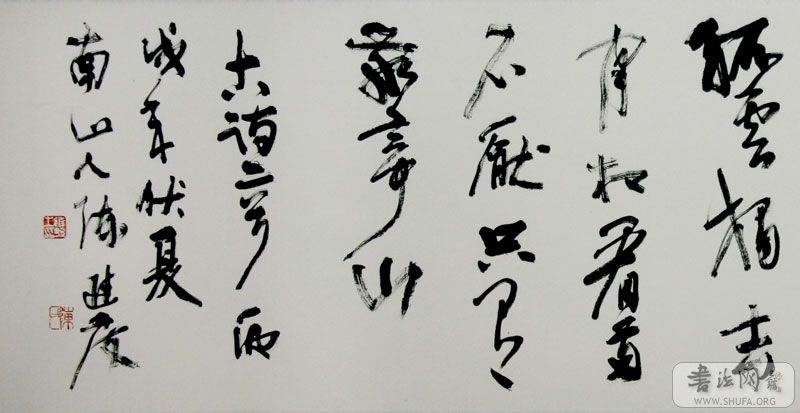 孤雲獨去
閒相看兩
不厭只有
敬亭山
古詩一首丙
戌年伏夏
南山人陳進
書法网
WWW.SHUFA.ORG